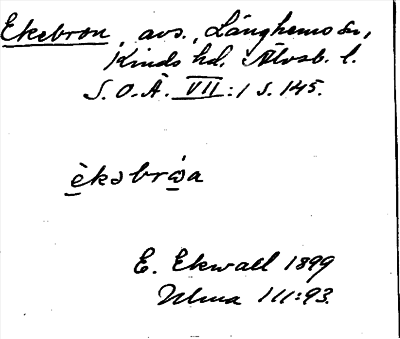 Ekebron, avs., Länghems sn,
Kinds hd. Älvsb. l.
S.O.Ä. VII:1 s. 145.
èkəbrə̀a
E. Ekwall 1899
Ulma 111:93.